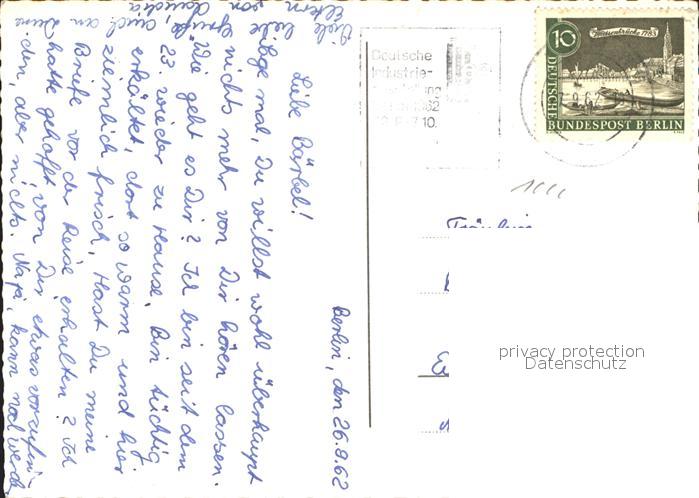 Berlin, den 26.9.62
Liebe Bärbel!
Sage mal, Du willst wohl überhaupt
nichts mehr von Dir hören lassen.
Wie geht es Dir? Ich bin seit dem
23. wieder zu Hause, bin tüchtig
erkältet, dort so warm und hier
ziemlich frisch. Hast Du meine
Briefe vor der Reise erhalten? Ich
hatte gehofft, von Dir etwas vorzufin-
den, aber nichts. Naja, kann noch werden
Viele liebe
Grüße, auch an Deine
Eltern von Claudia
Deutsche
Industrie-
1962
10.
10
Weissenbrücke 1783
DEUTSCHE
BUNDESPOST BERLIN
Fräulein
privacy protection
Datenschutz